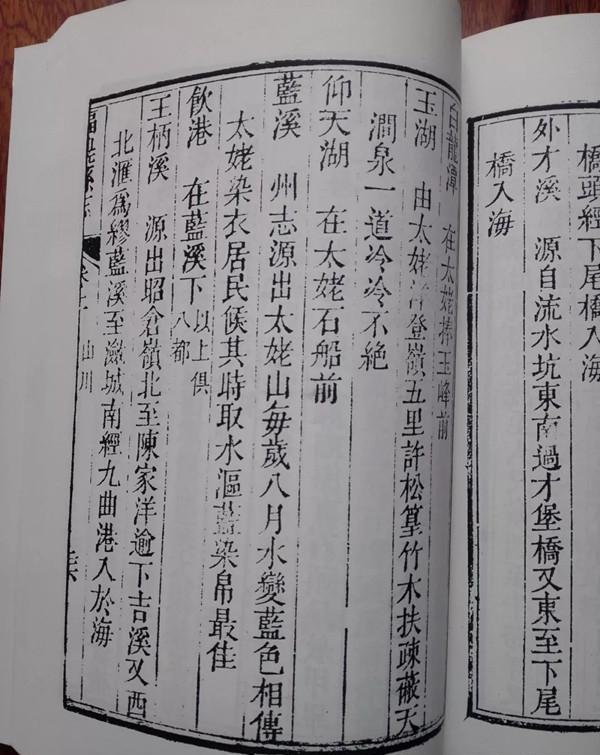 橋頭經下尾橋入海
外才溪　源自流水坑東南過才堡橋又東至下尾
橋入海
白龍潭　在太姥捧玉峰前
玉湖　由太姥洋登嶺五里許松篁竹木扶疎蔽天
澗泉一道冷冷不絶
仰天湖　在太姥石船前
藍溪　州志源出太姥山每歲八月水變藍色相傳
太姥染衣居民候其時取水漚藍染帛最佳
飲港　在藍溪下以上俱八都
王柄溪　源出昭倉嶺北至陳家洋逾下吉溪又西
北滙爲繆藍溪至瀲城南經九曲港入於海
福鼎縣志　卷之　山川